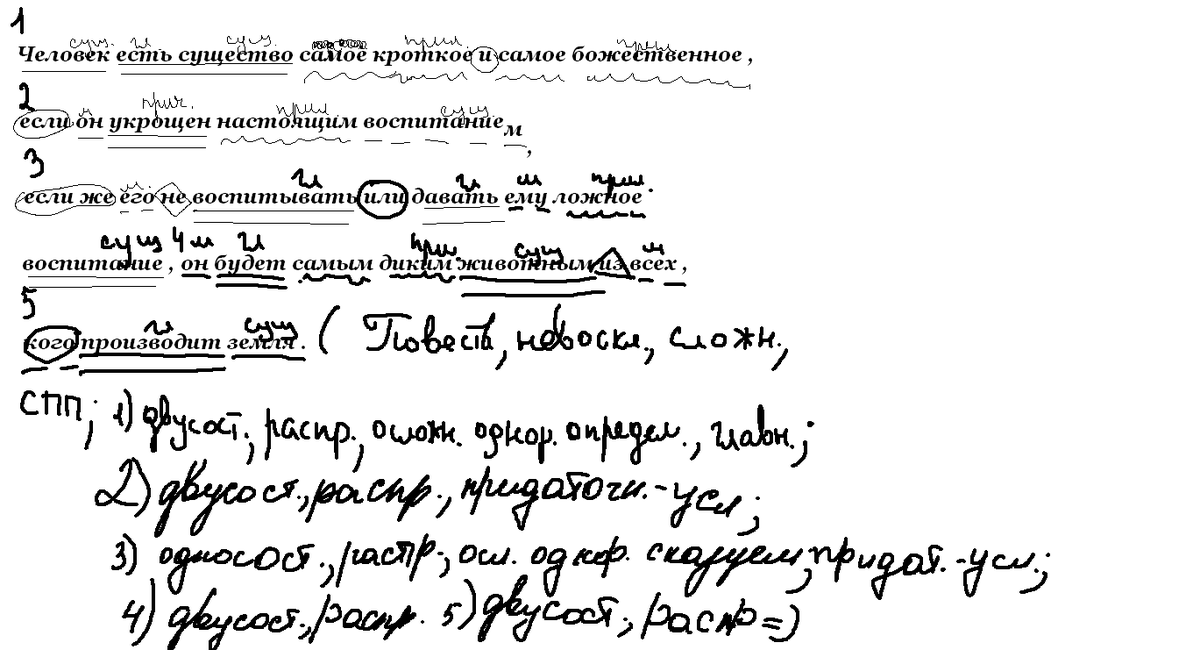 1
сущ. гл. сущ. прил. прил.
Человек есть существо самое кроткое и самое божественное ,
2
м прич. прил сущ
если он укрощен настоящим воспитанием ,
3
м. гл гл м прил.
если же его не воспитывать или давать ему ложное
сущ 4 м гл прил сущ м
воспитание , он будет самым диким животным из всех ,
5
гл сущ
кого производит земля . ( Повеств, невоскл., сложн,
СПП; 1) двусост., распр., осложн. однор. определ., главн.;
2) двусост., распр., придаточн.-усл;
3) односост., распр., осл. однор. сказуем, придат.-усл.;
4) двусост., распр. 5) двусост., распр =)